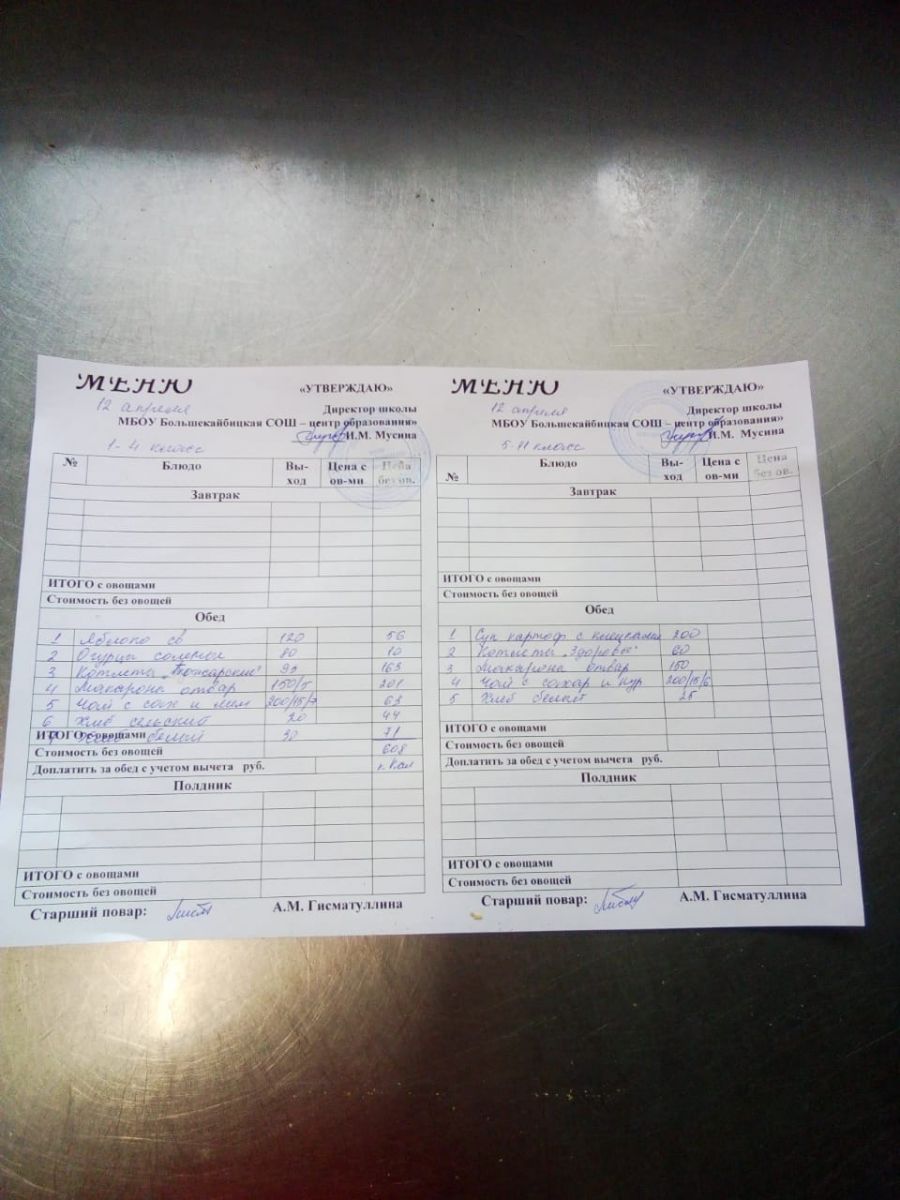 МЕНЮ
«УТВЕРЖДАЮ»
12 апреля
Директор школы
МБОУ Большекайбицкая СОШ – центр образования»
И.М. Мусина
1-4 класс
№ Блюдо Вы-ход Цена с ов-ми Цена без ов.
Завтрак
ИТОГО с овощами
Стоимость без овощей
Обед
1 Яблоко св 120 56
2 Огурцы соленые 80 10
3 Котлеты "Пожарские" 90 163
4 Макароны отвар 150/5 201
5 Чай с сах и лим 200/15/7 63
6 Хлеб сельский 20 44
ИТОГО с овощами
7 Хлеб белый 30 71
Стоимость без овощей 608
Доплатить за обед с учетом вычета руб. ккал
Полдник
ИТОГО с овощами
Стоимость без овощей
Старший повар: А.М. Гисматуллина
МЕНЮ
«УТВЕРЖДАЮ»
12 апреля
Директор школы
МБОУ Большекайбицкая СОШ – центр образования»
И.М. Мусина
5-11 класс
№ Блюдо Вы-ход Цена с ов-ми Цена без ов.
Завтрак
ИТОГО с овощами
Стоимость без овощей
Обед
1 Суп картоф с клецками 200
2 Котлеты "Здоровье" 60
3 Макароны отвар 150
4 Чай с сахар и кур 200/15/6
5 Хлеб белый 25
ИТОГО с овощами
Стоимость без овощей
Доплатить за обед с учетом вычета руб.
Полдник
ИТОГО с овощами
Стоимость без овощей
Старший повар: А.М. Гисматуллина